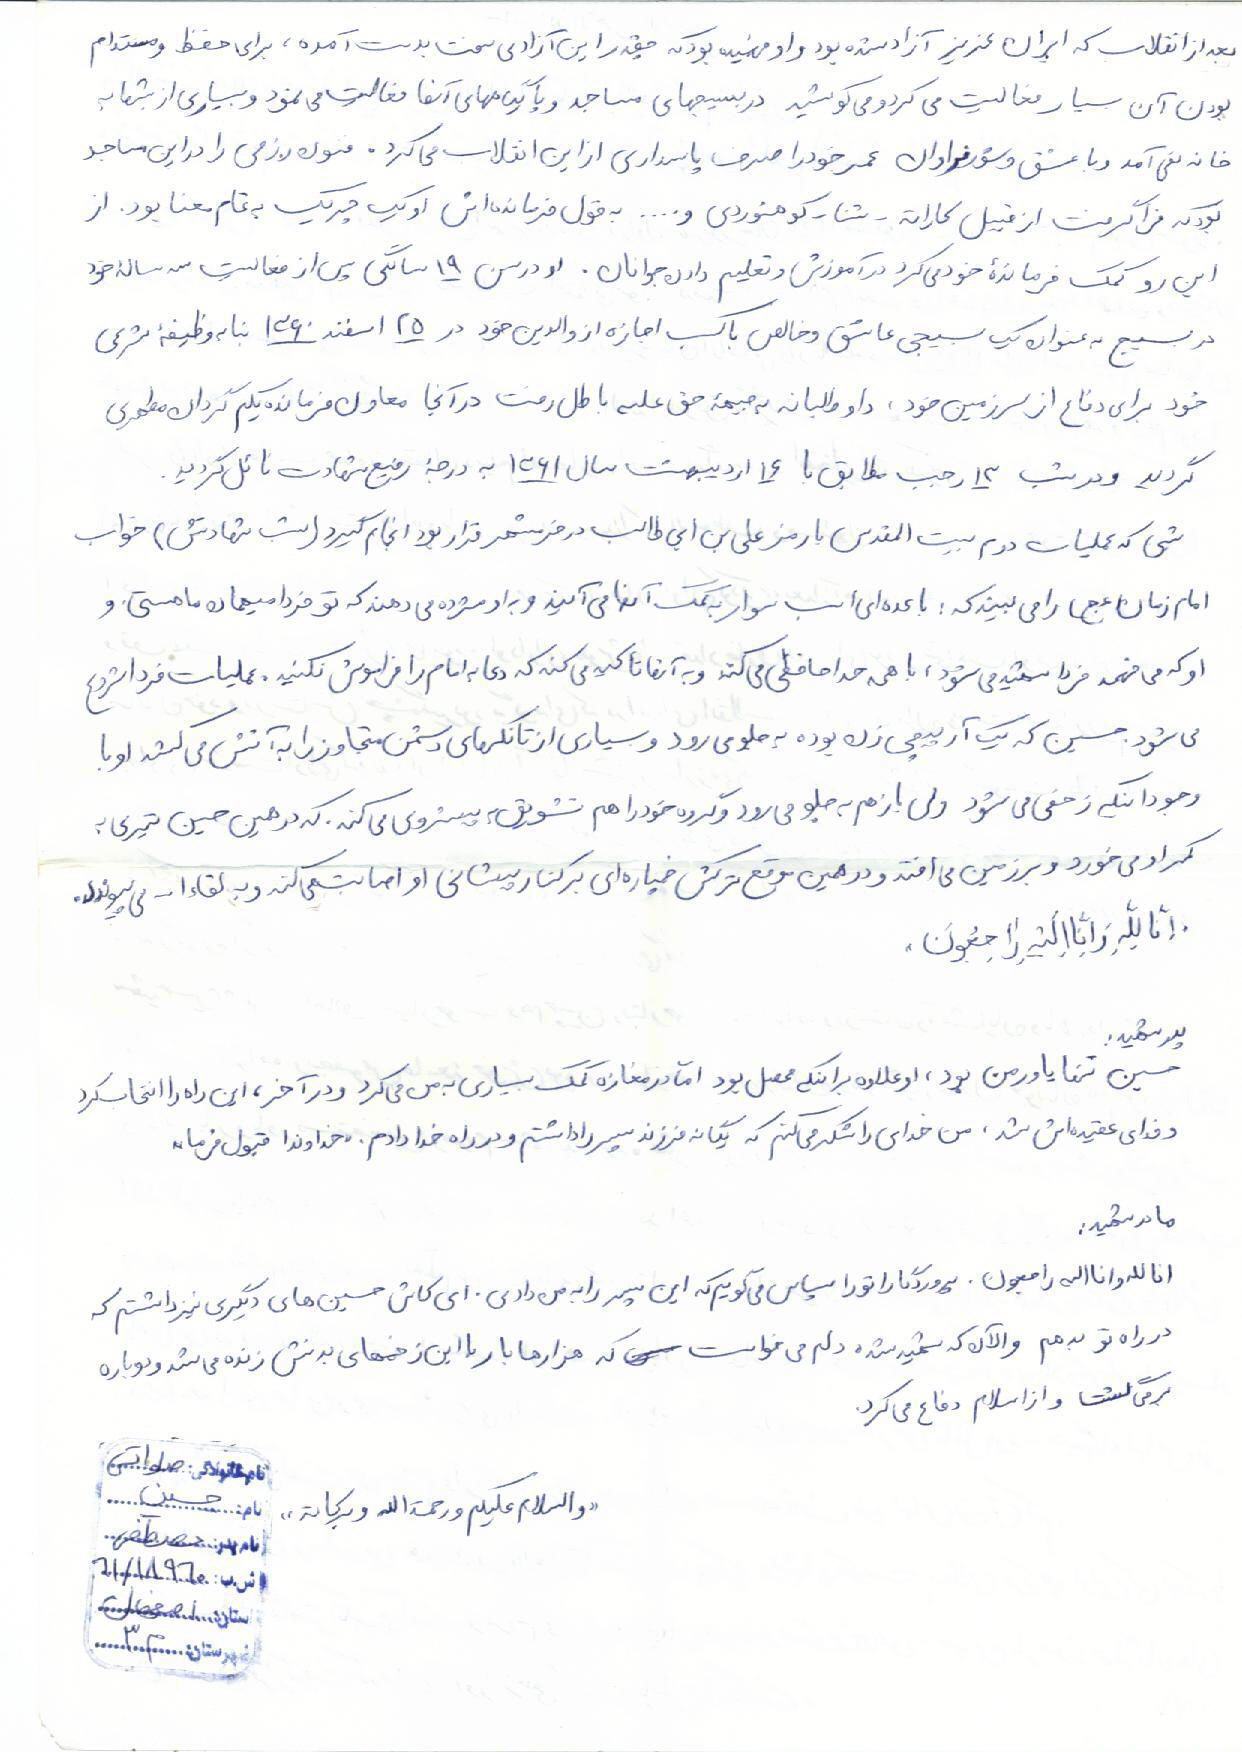 بعد از انقلاب که ایران عزیز آزاد شده بود و او فهمیده بود که چقدر این آزادی سخت بدست آمده، برای حفظ و مستدام
بودن آن بسیار فعالیت می کرد و می کوشید در بسیجهای مساجد و پایگاههای آنها فعالیت می نمود و بسیاری از شبها به
خانه نمی آمد و با عشق و شور فراوان عمر خود را صرف پاسداری از این انقلاب می کرد. فنون رزمی را در این مساجد
بود که فرا گرفت از قبیل کاراته - شنا - کوهنوردی و .... به قول فرمانده اش او یک چریک به تمام معنا بود. از
این رو کمک فرماندۀ خود می کرد در آموزش و تعلیم دادن جوانان. او در سن ۱۹ سالگی پس از فعالیت سه سالۀ خود
در بسیج به عنوان یک بسیجی عاشق و خالص با کسب اجازه از والدین خود در ۲۵ اسفند ۱۳۶۰ بنا به وظیفۀ شرعی
خود برای دفاع از سرزمین خود، داوطلبانه به جبهۀ حق علیه باطل رفت در آنجا معاون فرمانده یکم گردان مطهری
گردید و در شب ۱۳ رجب مطابق با ۱۶ اردیبهشت سال ۱۳۶۱ به درجۀ رفیع شهادت نائل گردید.
شبی که عملیات دوم بیت المقدس با رمز علی بن ابی طالب در خرمشهر قرار بود انجام گیرد (شب شهادتش) خواب
امام زمان (عج) را می بیند که: با عده ای اسب سوار به کمک آنها می آیند و به او مژده می دهند که تو فردا میهمان ما هستی. و
او که می فهمد فردا شهید می شود، با همه خداحافظی می کند و به آنها تاکید می کند که دعا به امام را فراموش نکنید. عملیات فردا شروع
می شود. حسین که یک آرپیچی زن بوده به جلو می رود و بسیاری از تانکهای دشمن متجاوز را به آتش می کشد او با
وجود اینکه زخمی می شود ولی باز هم به جلو می رود و گروه خود را هم تشویق به پیشروی می کند. که در همین حین تیری به
کمر او می خورد و بر زمین می افتد و در همین موقع ترکش خمپاره ای بر کنار پیشانی او اصابت می کند و به لقاء ا... می پیوندد.
«اِنّا لِلّهِ وَ اِنّا اِلَیْهِ رٰاجِعُونَ»
پدر شهید:
حسین تنها یاور من بود، او علاوه بر اینکه محصل بود امّا در مغازه کمک بسیاری به من می کرد و در آخر، این راه را انتخاب کرد
و فدای عقیده اش شد، من خدای را شکر می کنم که یگانه فرزند پسر را داشتم و در راه خدا دادم. «خداوندا قبول فرما»
مادر شهید:
انا لله و انا الیه راجعون. پروردگارا تو را سپاس می گویم که این پسر را به من دادی. ای کاش حسین های دیگری نیز داشتم که
در راه تو بدهم والآن که شهید شده دلم می خواست که هزارها بار با این زخمهای بدنش زنده می شد و دوباره
برمی گشت و از اسلام دفاع می کرد.
«والسلام علیکم و رحمة الله و برکاته»
نام خانوادگی: صلواتی
نام: حسین
نام پدر: مصطفی
ش.ب:
استان: اصفهان
شهرستان: ۳۰